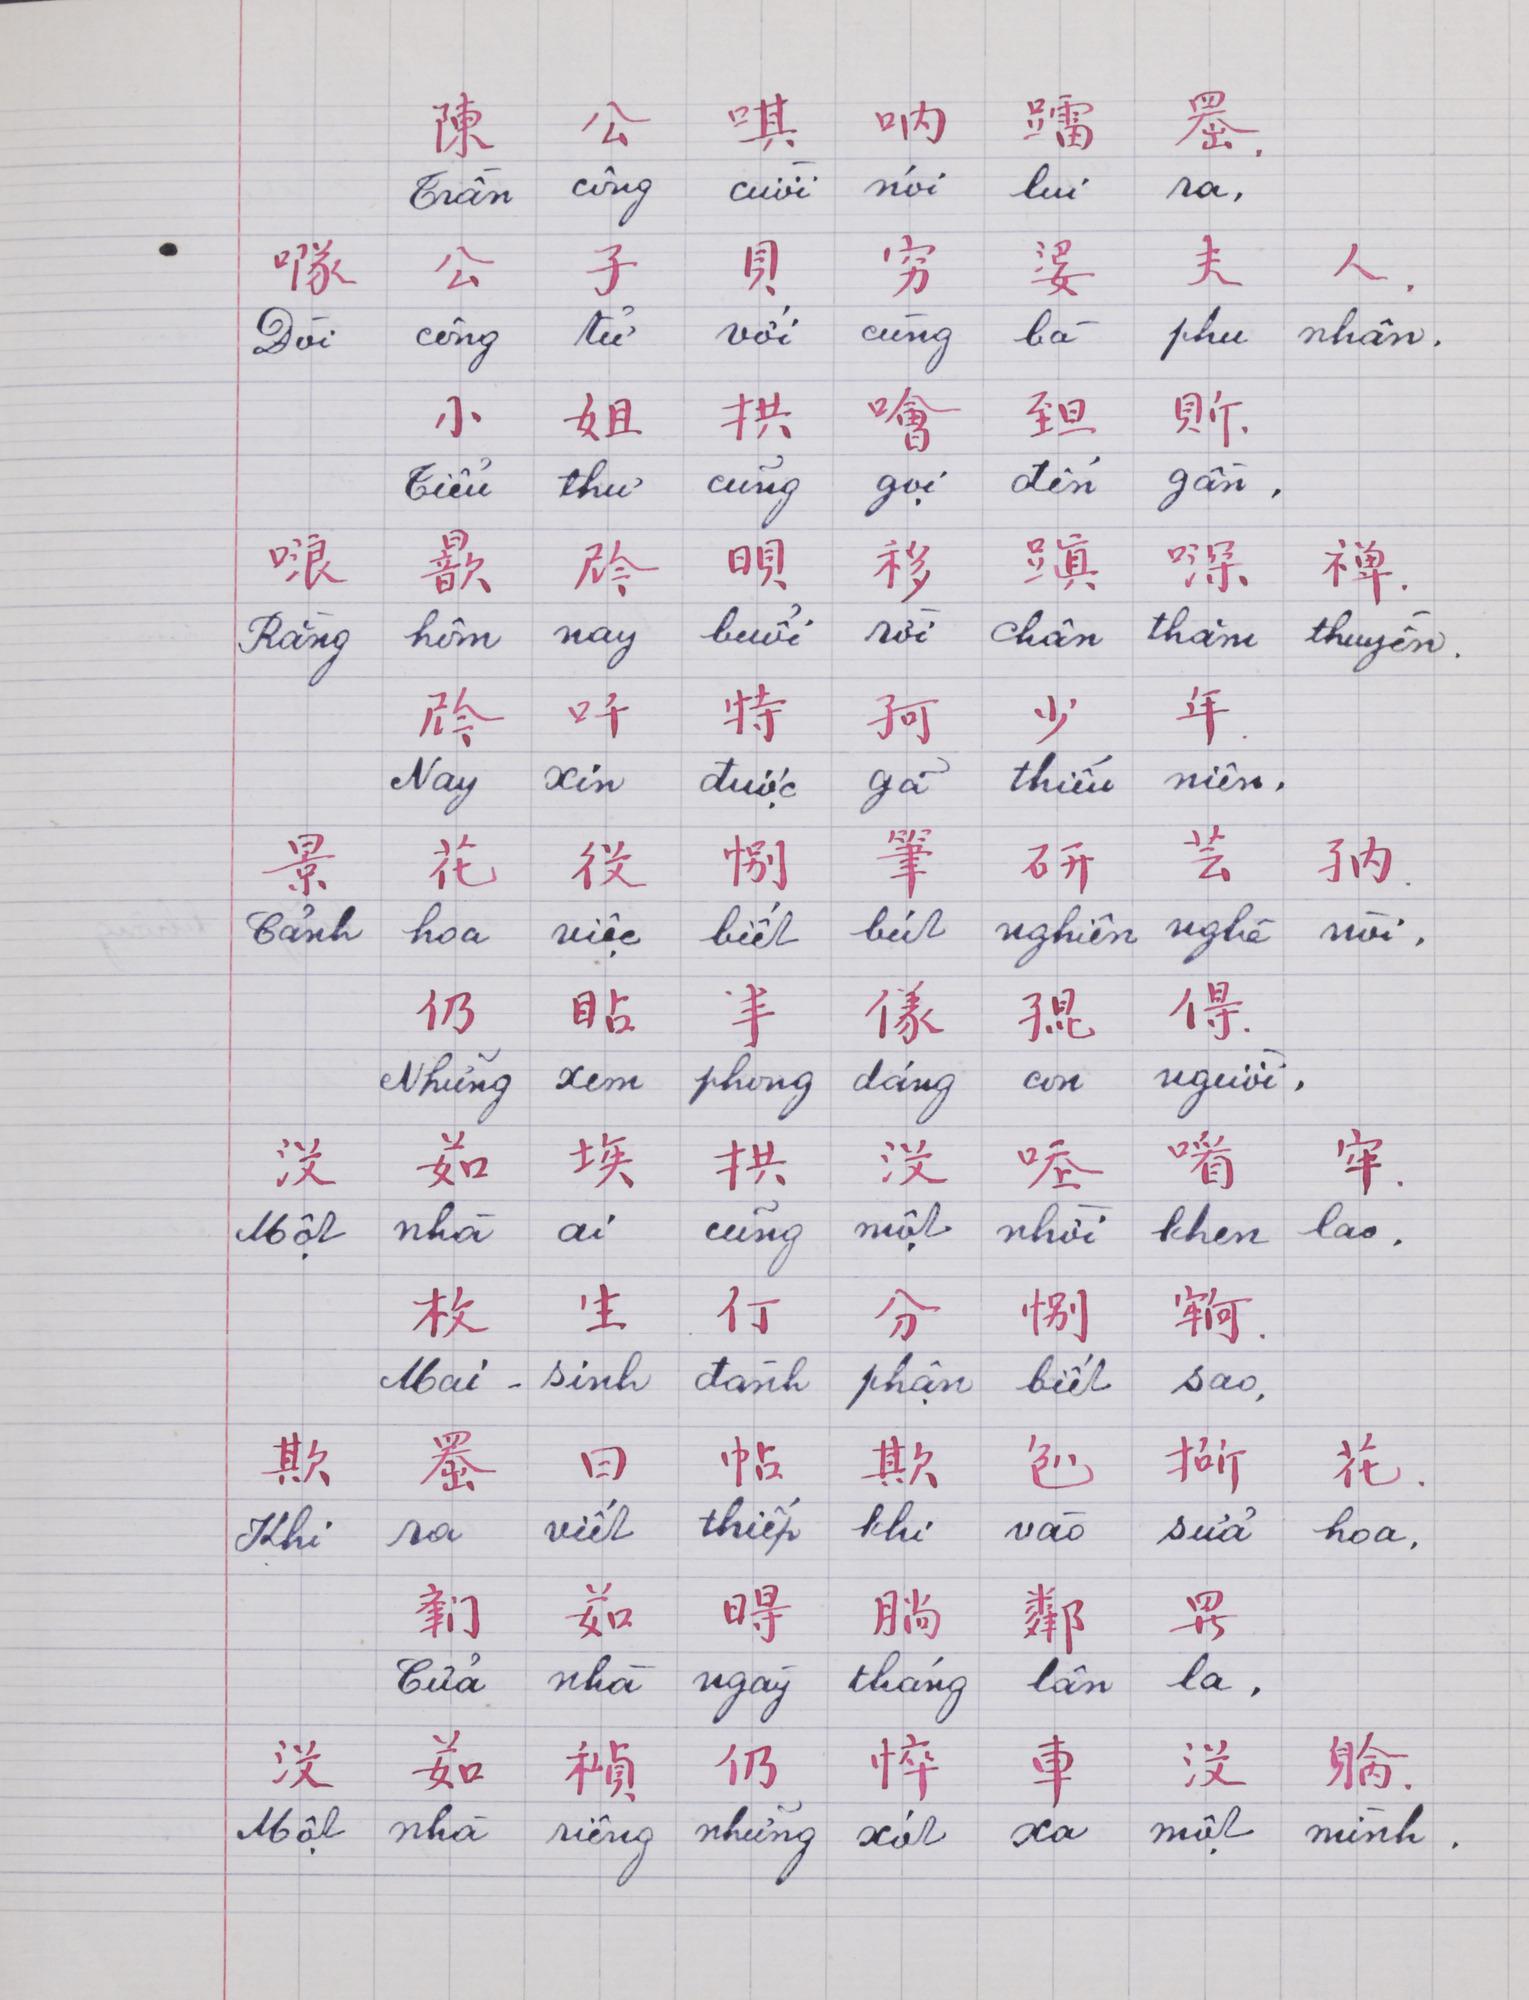 陳 公 唭 吶 𨆢 𦋦.
Trần công cười nói lui ra,
㗂 公 子 貝 穷 婆 夫 人.
Đòi công tử với cùng bà phu nhân.
小 姐 拱 噲 𦤾 𧵆.
Tiểu thư cũng gọi đến gần,
哴 歆 𫢩 𣇜 移 蹎 㗂 禅.
Rằng hôm nay buổi rời chân thăm thuyền.
𫢩 吀 特 哿 少 年.
Nay xin được gả thiếu niên,
景 花 役 别 筆 研 芸 内.
Cảnh hoa việc biết bút nghiên nghề nòi,
仍 䀡 丰 𠍵 𡥵 㝵.
Những xem phong dáng con người,
没 茹 埃 拱 没 𠳒 𠸦 牢.
Một nhà ai cũng một nhời khen lao,
枚 生 仃 分 别 𫳵.
Mai - sinh đành phận biết sao,
欺 𦋦 曰 帖 欺 𠓨 𢯢 花.
Khi ra viết thiếp khi vào sửa hoa,
𨷶 茹 𣈜 𣎃 鄰 𱺵.
Cửa nhà ngày tháng lân la,
没 茹 𥢆 仍 悴 車 没 𨉟.
Một nhà riêng những xót xa một mình.